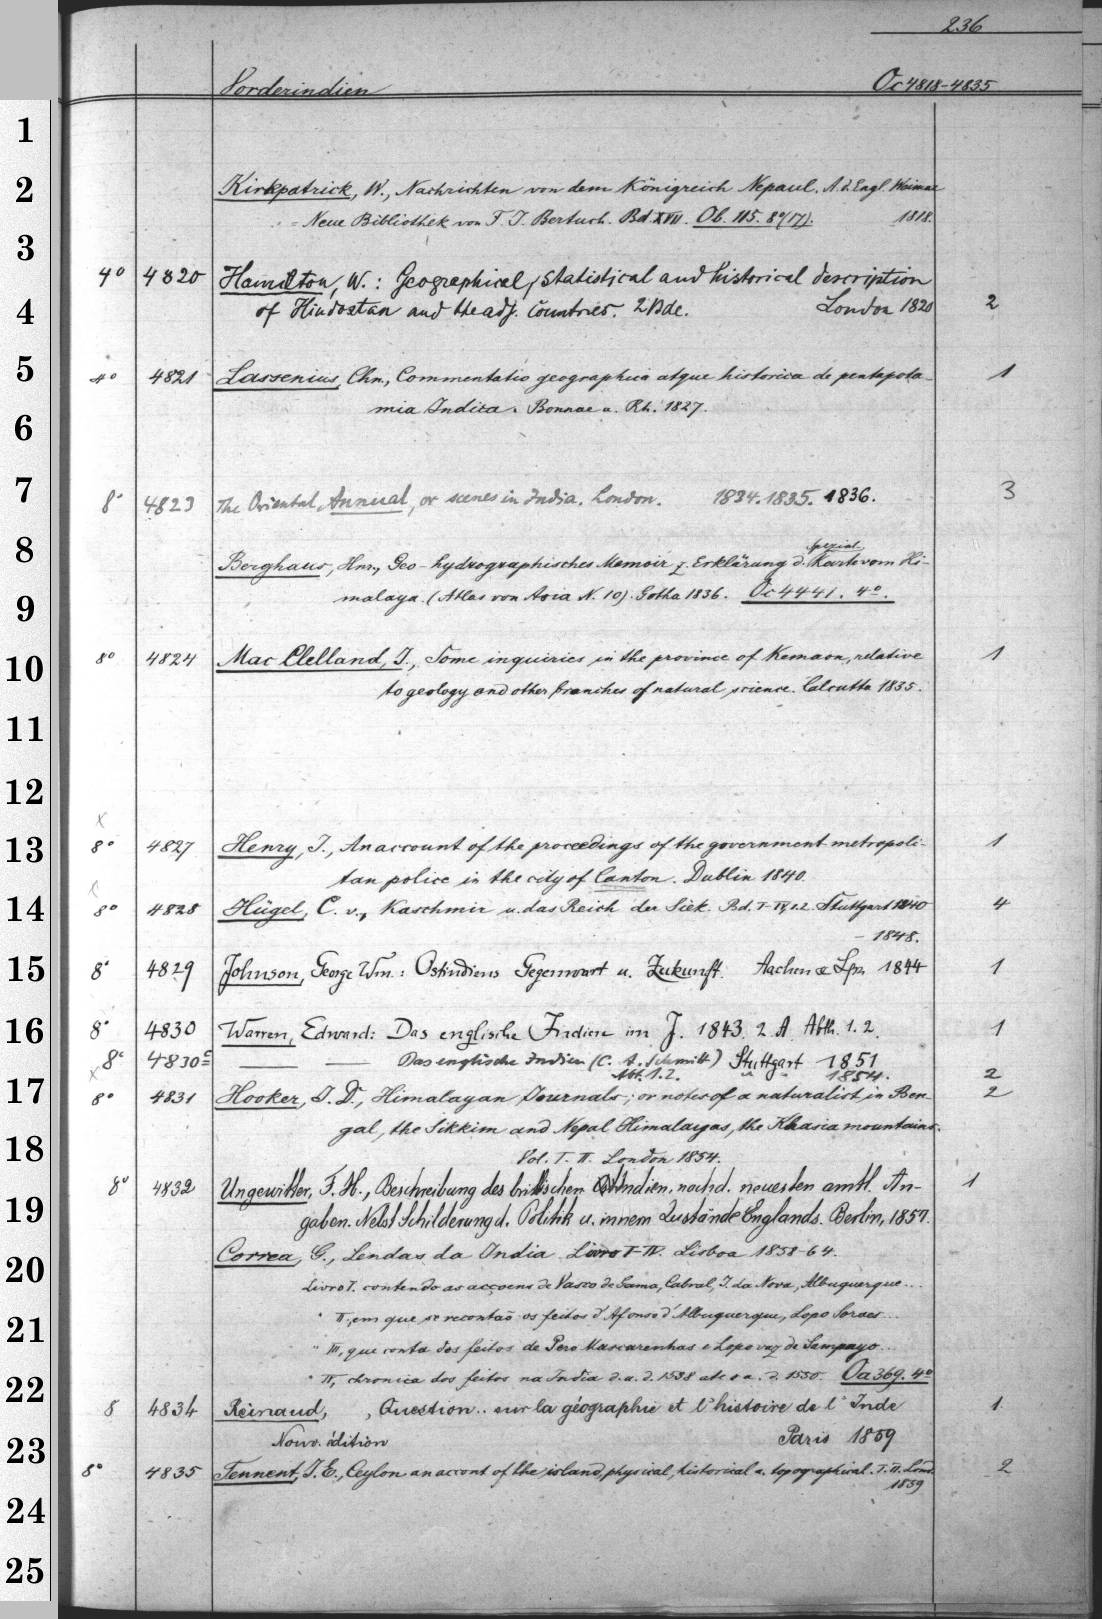 236
Vorderindien Oc 4818-4835
1
2 Kirkpatrick, W., Nachrichten von dem Königreich Nepaul. A. d. Engl. Weimar
Neue Bibliothek von F. J. Bertuch. Bd. XVII. Ob. 115. 8°(17). 1818.
3
4° 4820 Hamilton, W.: Geographical, statistical and historical description
4 of Hindostan and the adj. Countries. 2 Bde. London 1820 2
5 4° 4821 Lassenius, Chn., Commentatio geographica atque historica de pentapota-1
6 mia Indica. Bonnae a. Rh. 1827.
7 8° 4823 The Oriental Annual, or scenes in India. London. 1834. 1835. 1836. 3
8 Spezial
Berghaus, Hnr., Geo-hydrographisches Memoir z. Erklärung d. Karte vom Hi-
9 malaya. (Atlas von Asia N. 10). Gotha 1836. Oc 4441. 4°.
10 8° 4824 Mac Clelland, J., Some inquiries in the province of Kemaon, relative 1
to geology and other branches of natural science. Calcutta 1835.
11
12
x
13 8° 4827 Henry, J., An account of the proceedings of the government metropoli- 1
tan police in the city of Canton. Dublin 1840.
x
14 8° 4828 Hügel, C. v., Kaschmir u. das Reich der Siek. Bd. I-IV, 1.2. Stuttgart 1840 4
- 1848.
15 8° 4829 Johnson, George Wm.: Ostindiens Gegenwart u. Zukunft. Aachen & Lpz. 1844 1
16 8° 4830 Warren, Edward: Das englische Indien im J. 1843. 2 A. Abth. 1. 2. 1
8° 4830c — Das englische Indien (C. A. Schmitt) Stuttgart 1851
Abt. 1.2. " " 1854. 2
x
17 8° 4831 Hooker, J. D., Himalayan Journals; or notes of a naturalist in Ben- 2
gal, the Sikkim and Nepal Himalayas, the Khasia mountains.
18 Vol. I. II. London 1854.
8° 4832 Ungewitter, F. H., Beschreibung des brittischen Ostindien, nach d. neuesten amtl. An- 1
19 gaben. Nebst Schilderung d. Politik u. innern Zustände Englands. Berlin, 1857.
Correa, G., Lendas da India Livro I-IV. Lisboa 1858-64.
20 Livro I. contendo as acçoens de Vasco de Gama, Cabral, J. da Nova, Albuquerque...
" II, em que se recontaõ os feitos d'Afonso d'Albuquerque, Lopo Soraes...
21 " III, que conta dos feitos de Pero Mascarenhas e Lopo vaz de Sampayo...
22 " IV, chronica dos feitos na India d. a. d. 1538 até o a. d. 1550. Oa 369. 4°
8 4834 Reinaud, , Question.. sur la géographie et l'histoire de l'Inde 1.
23 Nouv. édition Paris 1859
8° 4835 Tennent, J. E., Ceylon an accont of the island, physical, historical a. topographical. T. II. Lond. 2
1859
24
25